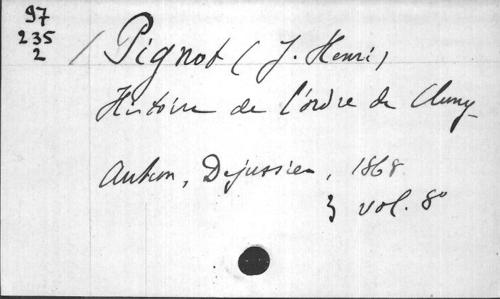 97
235
2
Pignot (J. Henri)
Histoire de l'ordre de Cluny
Autun, Dejussieu, 1868
3 vol. 8°